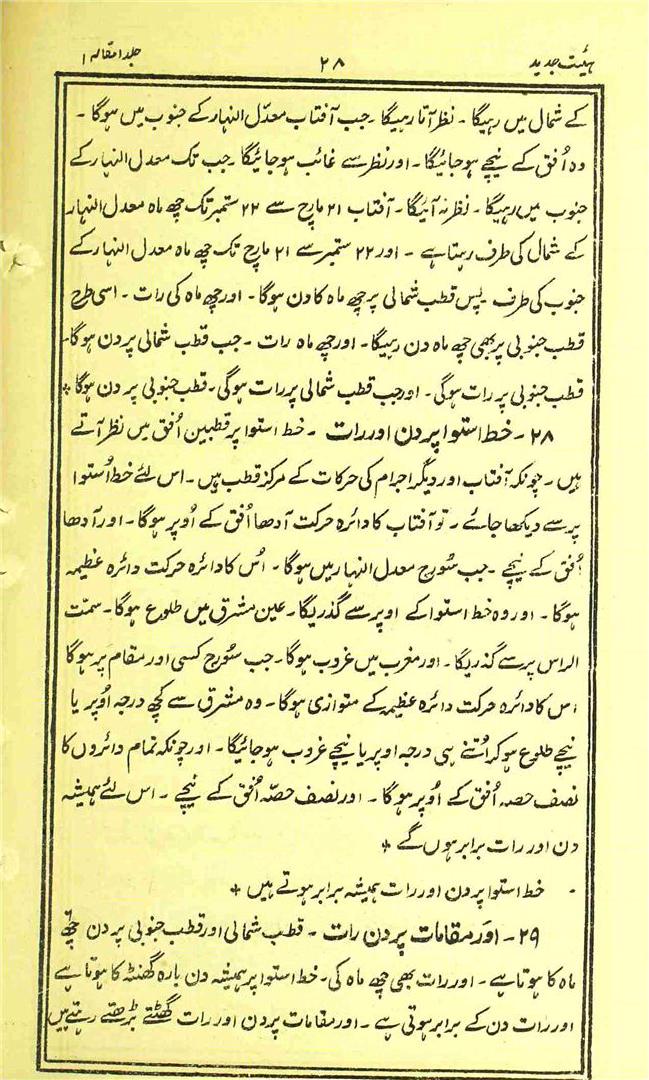 ہیئت جدید ۲۸ جلد ۱ مقالہ ۱
کے شمال میں رہیگا ۔ نظر آتا رہیگا ۔ جب آفتاب معدّل النہار کے جنوب میں ہوگا ۔
وہ اُفق کے نیچے ہو جائیگا ۔ اور نظر سے غائب ہو جائیگا ۔ جب تک معدل النہار کے
جنوب میں رہیگا ۔ نظر نہ آئیگا ۔ آفتاب ۲۱ مارچ سے ۲۲ ستمبر تک چھ ماہ معدل النہار
کے شمال کی طرف رہتا ہے ۔ اور ۲۲ ستمبر سے ۲۱ مارچ تک چھ ماہ معدل النہار کے
جنوب کی طرف ۔ پس قطب شمالی پر چھ ماہ کا دن ہوگا ۔ اور چھ ماہ کی رات ۔ اسی طرح
قطب جنوبی پر بھی چھ ماہ دن رہیگا ۔ اور چھ ماہ رات ۔ جب قطب شمالی پر دن ہوگا ۔
قطب جنوبی پر رات ہوگی ۔ اور جب قطب شمالی پر رات ہوگی ۔ قطب جنوبی پر دن ہوگا *
۲۸ ۔ خط استوا پر دن اور رات ۔ خط استوا پر قطبین اُفق میں نظر آتے
ہیں ۔ چونکہ آفتاب اور دیگر اجرام کی حرکات کے مرکز قطب ہیں ۔ اس لئے خط اُستوا
پر سے دیکھا جائے ۔ تو آفتاب کا دائرہ حرکت آدھا اُفق کے اُوپر ہوگا ۔ اور آدھا
اُفق کے نیچے ۔ جب سُورج معدل النہار میں ہوگا ۔ اُس کا دائرہ حرکت دائرہ عظیمہ
ہوگا ۔ اور وہ خط استوا کے اوپر سے گذریگا ۔ عین مشرق میں طلوع ہوگا ۔ سمت
الراس پر سے گذریگا ۔ اور مغرب میں غروب ہوگا ۔ جب سُورج کسی اور مقام پر ہوگا
اس کا دائرہ حرکت دائرہ عظیمہ کے متوازی ہوگا ۔ وہ مشرق سے کچھ درجہ اُوپر یا
نیچے طلوع ہو کر اُتنے ہی درجہ اوپر یا نیچے غروب ہو جائیگا ۔ اور چونکہ تمام دائروں کا
نصف حصہ اُفق کے اُوپر ہوگا ۔ اور نصف حصّہ اُفق کے نیچے ۔ اس لئے ہمیشہ
دن اور رات برابر ہوں گے *
۔ خط استوا پر دن اور رات ہمیشہ برابر ہوتے ہیں *
۲۹ ۔ اور مقامات پر دن رات ۔ قطب شمالی اور قطب جنوبی پر دن چھ
ماہ کا ہوتا ہے ۔ اور رات بھی چھ ماہ کی ۔ خط استوا پر ہمیشہ دن بارہ گھنٹہ کا ہوتا ہے
اور رات دن کے برابر ہوتی ہے ۔ اور مقامات پر دن اور رات گھٹتے بڑھتے رہتے ہیں